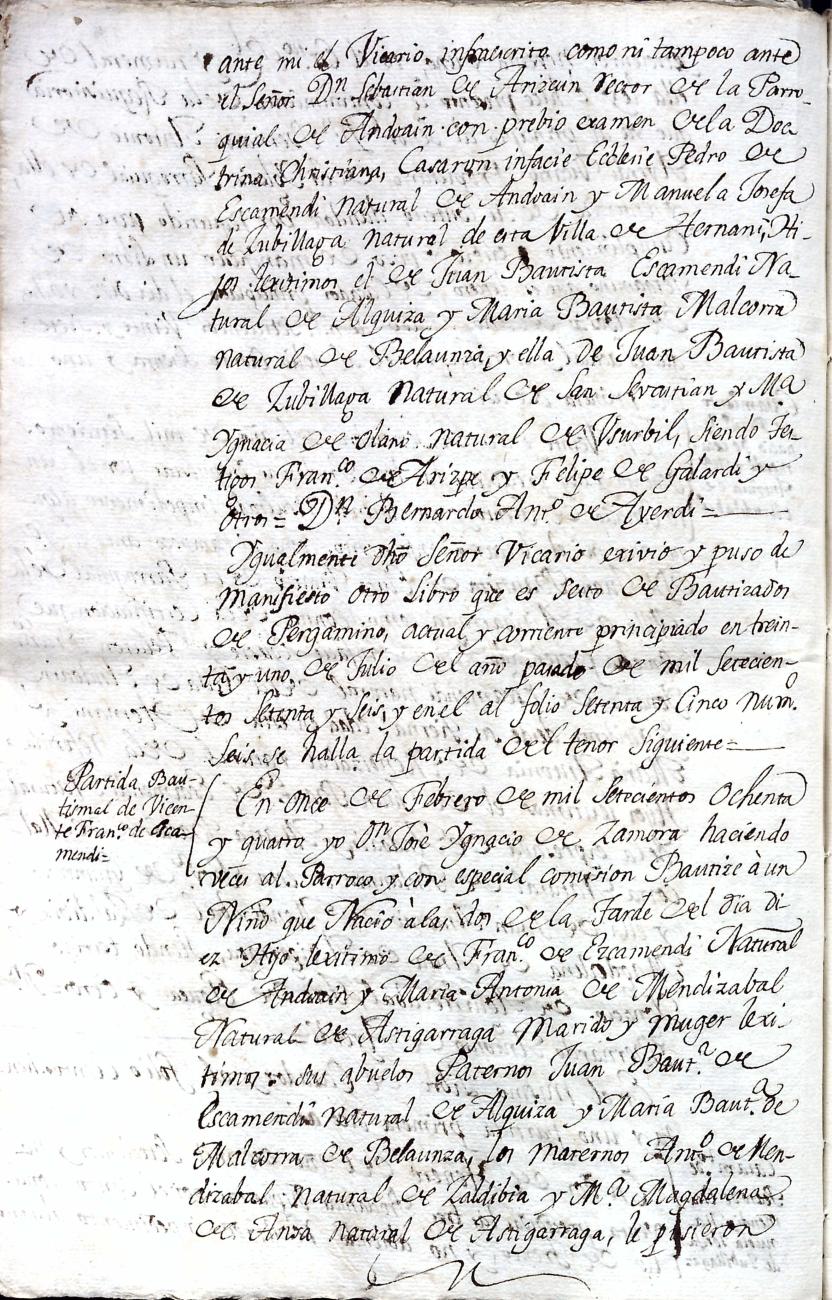 ante mi el Vicario infraescrito como ni tampoco ante
el Señor Dn Sebastian de Arizcun Rector de la Parro-
quial de Andoain con prebio examen de la Doc
trina Christiana, Casaron infacie Ecclesie Pedro de
Escamendi Natural de Andoain y Manuela Josefa
de Zubillaga natural de esta Villa de Hernani, Hi-
jos lexitimos el de Juan Bautista Escamendi Na-
tural de Alquiza y Maria Bautista Malcorra
natural de Belaunza, y ella de Juan Bautista
de Zubillaga Natural de San Sevastian y Ma
Ygnacia de Olano natural de Usurbil, siendo Tes-
tigos Franco. de Arizpe y Felipe de Galardi y
otros = Dn Bernardo Anto. de Ayerdi =
Ygualmente dho Señor Vicario exivió y puso de
Manifiesto otro Libro que es Sexto de Bautizados
de Pergamino, actual y corriente principiado en trein-
ta y uno de Julio del año pasado de mil Setecien-
tos Setenta y Seis, y en el al folio Setenta y Cinco numo.
Seis se halla la partida del tenor Siguiente =
Partida Bau-
tismal de Vicen-
te Franco. de Esca-
mendi =
En Once de Febrero de mil Setecientos Ochenta
y quatro yo Dn Josè Ygnacio de Zamora haciendo
veces al Parroco y con especial comision Bautize à un
Niño que Naciò à las dos de la Tarde del dia di
ez Hijo lexitimo de Franco. de Ezcamendi Natural
de Andoain y Maria Antonia de Mendizabal
Natural de Astigarraga Marido y Muger lexi-
timos: sus abuelos Paternos Juan Bauta. de
Escamendi natural de Alquiza y Maria Bauta. de
Malcorra de Belaunza, los maternos Anto. de Men-
dizabal natural de Zaldibia y Ma. Magdalena
de Anza natural de Astigarraga, le pusieron